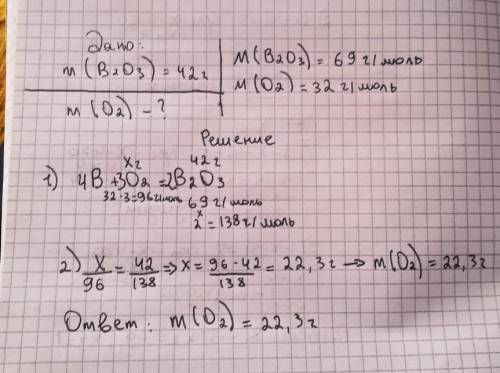 Дано:
m(B2O3) = 42г
m(O2) - ?
M(B2O3) = 69 г/моль
M(O2) = 32 г/моль
Решение
xг 42г
1) 4B + 3O2 = 2B2O3
32·3=96г/моль 69 г/моль
x
2 = 138 г/моль
2) x/96 = 42/138 => x = 96·42/138 = 22,3г → m(O2) = 22,3г
Ответ: m(O2) = 22,3г